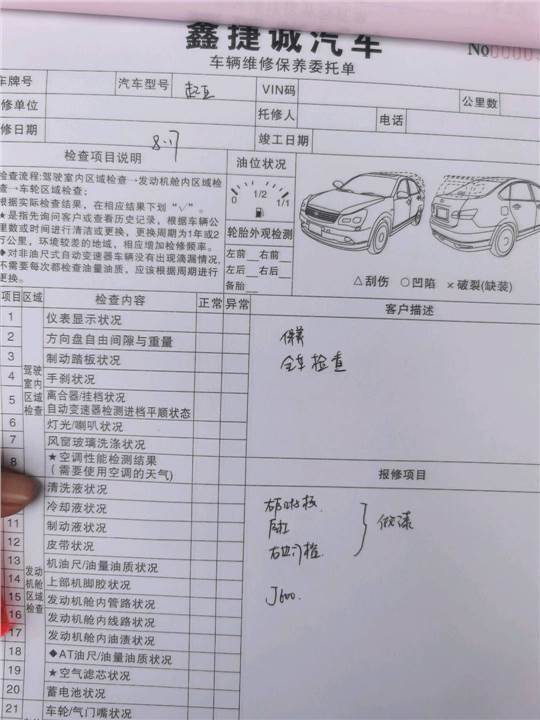 鑫捷诚汽车
车辆维修保养委托单
No0000
车牌号 汽车型号 起亚 VIN码 公里数
修单位 托修人 电话
修日期 8.17 竣工日期
检查项目说明
检查流程:驾驶室内区域检查→发动机舱内区域检
查→车轮区域检查;
根据实际检查结果,在相应结果下划“√”。
★是指先询问客户或查看历史记录,根据车辆公
里数或时间进行清洁或更换,更换周期为1年或2
万公里,环境较差的地域,相应增加检修频率。
◆对非油尺式自动变速器车辆没有出现滴漏情况,
不需要每次都检查油量油质,应该根据周期进行
更换。
油位状况
0 1/2 1/1
轮胎外观检测
左前 右前
左后 右后
备胎
△刮伤 ○凹陷 ×破裂(缺装)
项目 区域 检查内容 正常 异常
驾驶
室内
区域
检查
1 仪表显示状况
2 方向盘自由间隙与重量
3 制动踏板状况
4 手刹状况
5 离合器/挂档状况
自动变速器检测进档平顺状态
6 灯光/喇叭状况
7 风窗玻璃洗涤状况
8 ★空调性能检测结果
(需要使用空调的天气)
发动
机舱
区域
检查
清洗液状况
冷却液状况
11 制动液状况
12 皮带状况
13 机油尺/油量油质状况
14 上部机脚胶状况
15 发动机舱内管路状况
16 发动机舱内线路状况
17 发动机舱内油渍状况
18 ◆AT油尺/油量油质状况
19 ★空气滤芯状况
20 蓄电池状况
21 车轮/气门嘴状况
客户描述
保养
全车检查
报修项目
做漆
J600.